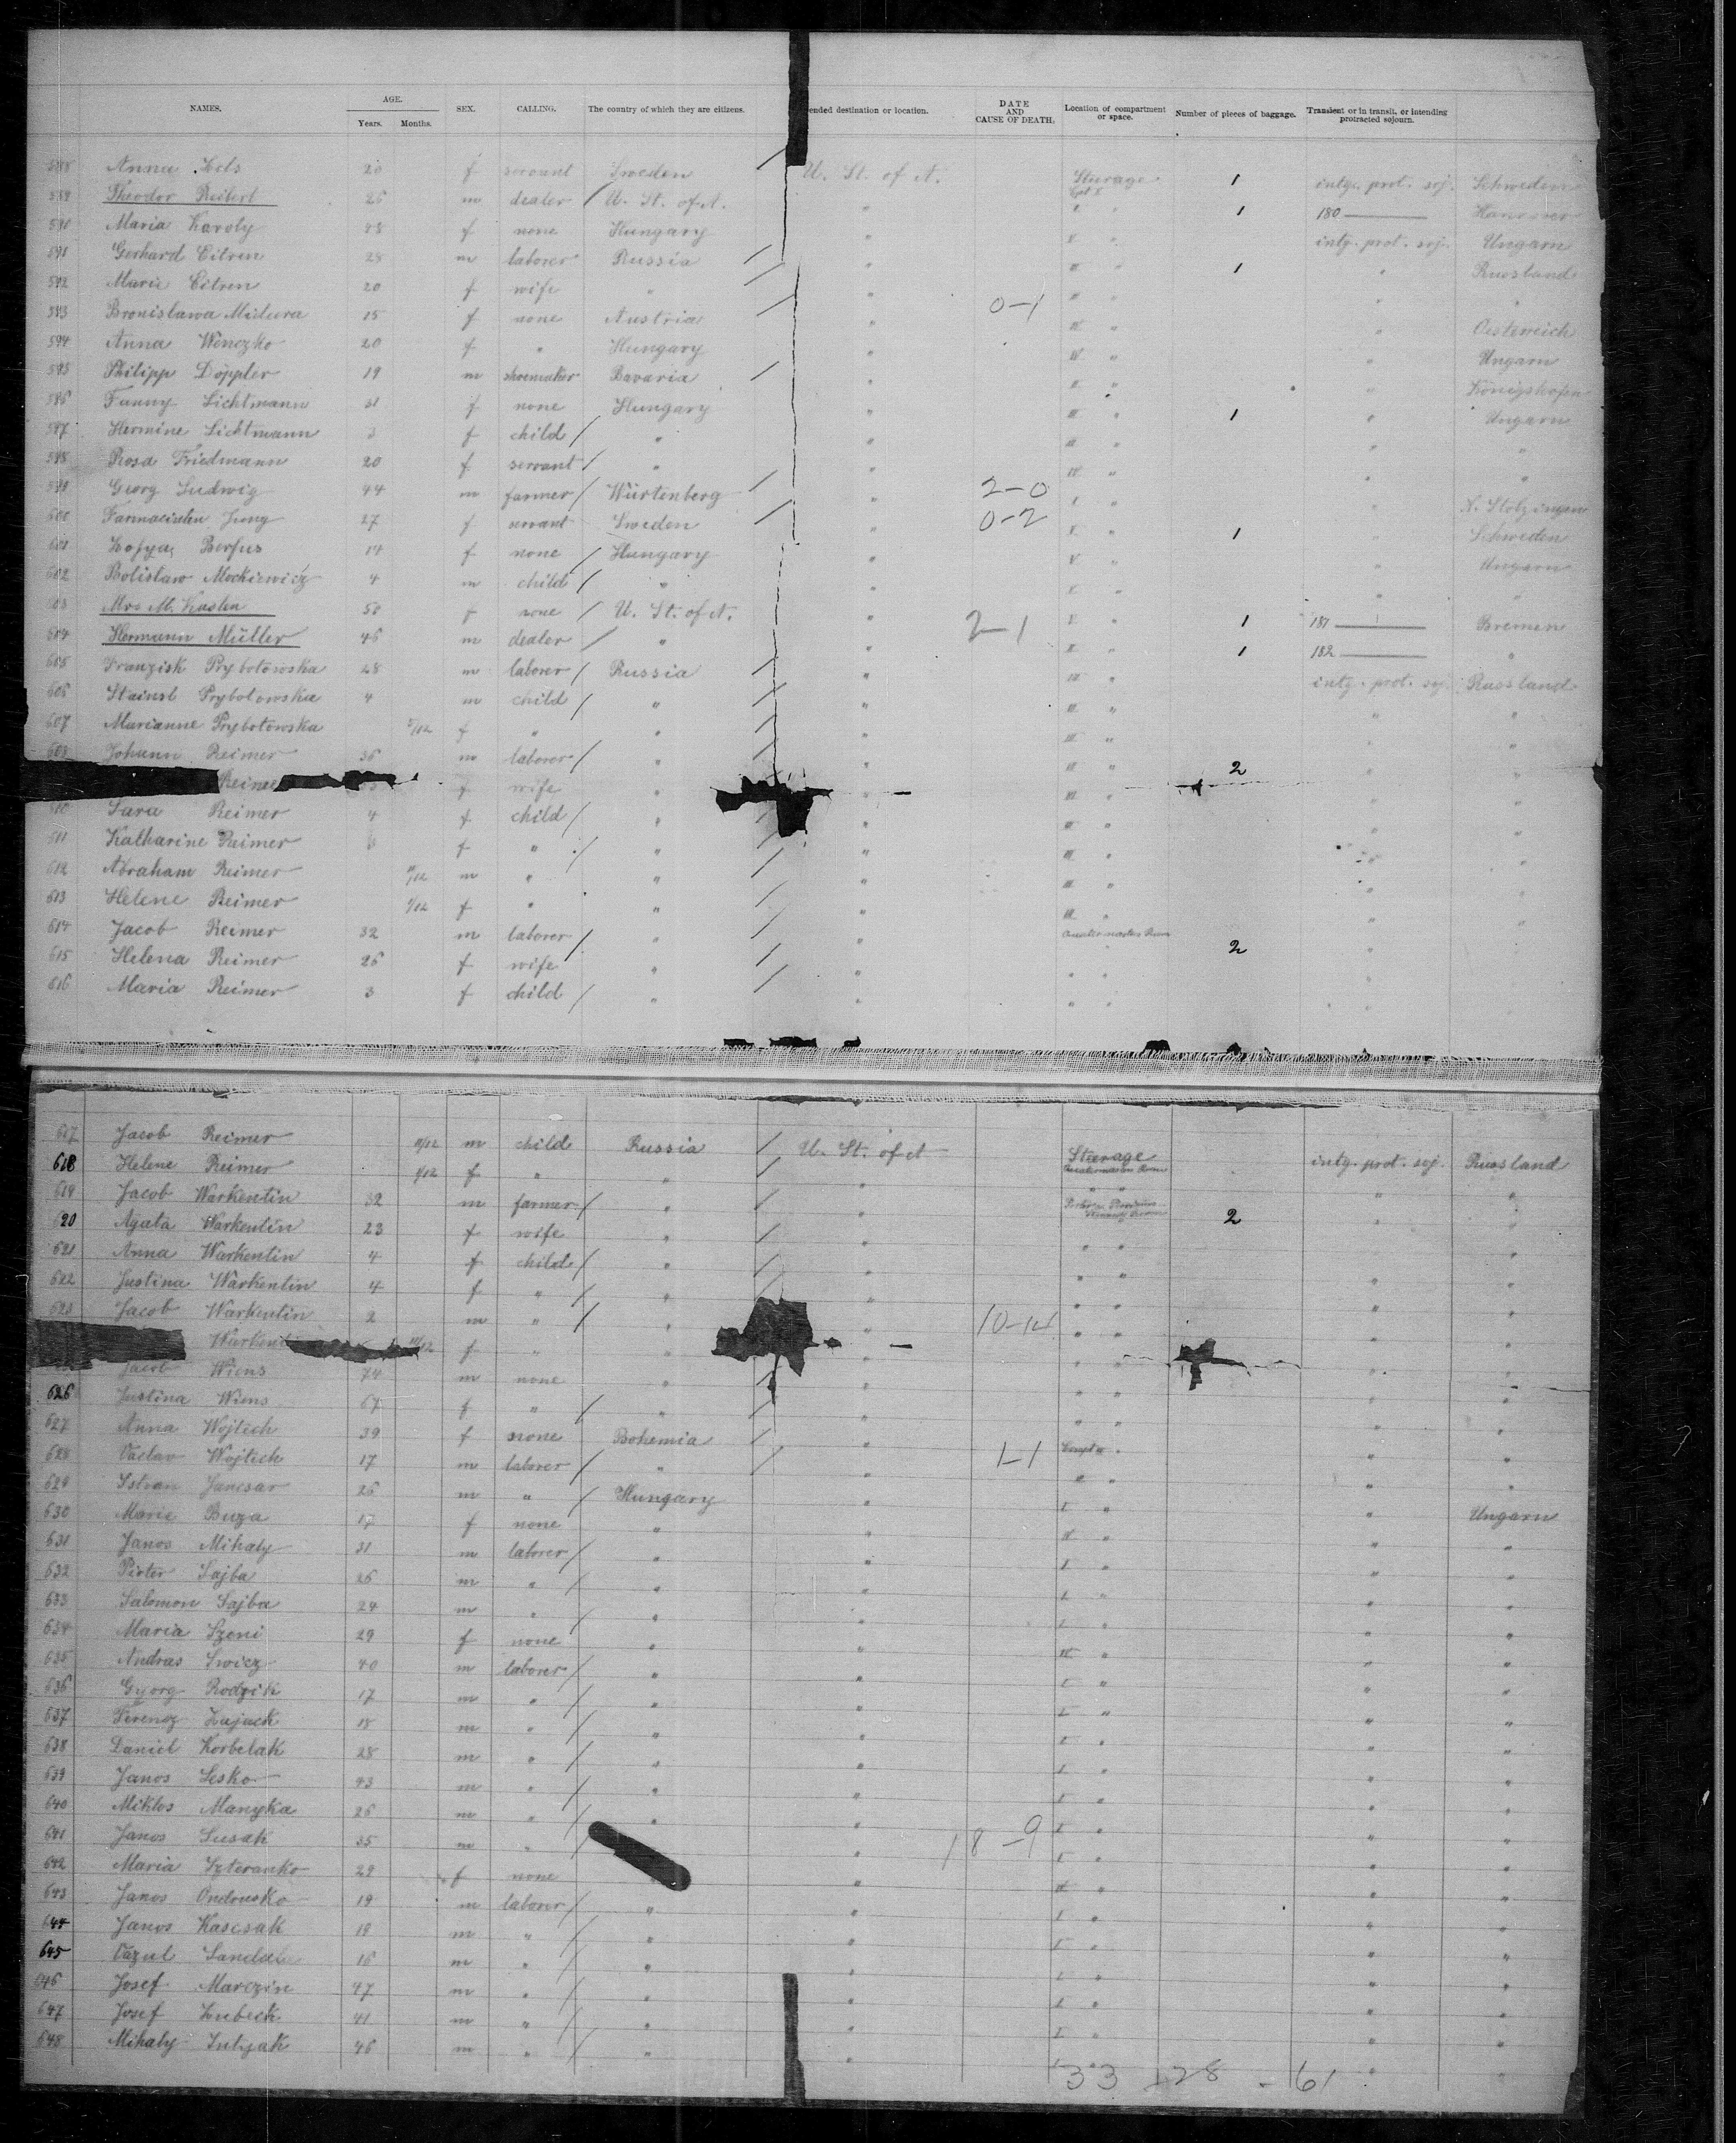 NAMES. AGE. Years. Months. SEX. CALLING. The country of which they are citizens. ended destination or location. DATE AND CAUSE OF DEATH. Location of compartment or space. Number of pieces of baggage. Transient or in transit, or intending protracted sojourn.
588 Anna 20 f servant Sweden / U. St. of A. Sturage 1 intg. prot. soj. Schweden
589 Theodor Reibert 26 m dealer / U. St. of A. " 1 180 Hannover
590 Maria Karoly 48 f none Hungary " intg. prot. soj. Ungarn
591 Gerhard Citren 28 m laborer Russia / " III " 1 " Russland
592 Marie Citren 20 f wife " / " " " "
593 Bronislawa 15 f none Austria / " 0-1 IV " " Oesterreich
594 Anna Wenczko 20 f " Hungary " IV " " Ungarn
595 Philipp Doppler 19 m shoemaker Bavaria / " " " Königshofen
596 Fanny Lichtmann 31 f none Hungary " III " 1 " Ungarn
597 Hermine Lichtmann 3 f child / " " III " " "
598 Rosa Friedmann 20 f servant / " " IV " " "
599 Georg Ludwig 44 m farmer / Würtenberg / " 2-0 I " " N. Stotzingen
600 Jung 27 f servant Sweden / " 0-2 " 1 " Schweden
601 Zofya 14 f none / Hungary " " " Ungarn
602 Bolislaw Mockiewicz 4 m child / " " " " "
603 Mrs M. Kasten 58 f none / U. St. of A. " 2-1 " 1 181 Bremen
604 Hermann Müller 46 m dealer / " " " 1 182 "
605 Franzisk Prybotowska 28 m laborer / Russia / " III " intg. prot. soj. Russland
606 Prybotowska 4 m child / " / " III " " "
607 Marianne Prybotowska 5/12 f " " / " III " " "
608 Johann Reimer 36 m laborer / " / " III " 2 " "
Reimer f wife " " III " " "
610 Sara Reimer 4 f child / " " III " " "
611 Katharine Reimer 3 f " / " / " III " " "
612 Abraham Reimer 11/12 m " " / " III " " "
613 Helene Reimer 1/12 f " " / " III " " "
614 Jacob Reimer 32 m laborer / " / " 2 "
615 Helena Reimer 26 f wife / " / " " " "
616 Maria Reimer 3 f child / " / " " " "
617 Jacob Reimer 11/12 m child Russia / U. St. of A Sturage intg. prot. soj. Russland
618 Helene Reimer 1/12 f " " / " " " " "
619 Jacob Warkentin 32 m farmer / " / " 2 " "
620 Agata Warkentin 23 f wife " / " " " "
621 Anna Warkentin 4 f child / " / " " " " "
622 Justina Warkentin 4 f " / " / " " " " "
623 Jacob Warkentin 2 m " / " " 10-14 " " " "
Warkenti f " " " " " " "
Jacob Wiens 74 m none " / " " " " "
626 Justina Wiens 67 f " / " / " " " " "
627 Anna Wojtech 39 f none Bohemia / " 1-1 " "
628 Vaclav Wojtech 17 m laborer / " / " " " "
629 Istvan Jancsar 26 m " / Hungary " I " " Ungarn
630 Marie Buza 17 f none " " IV " " "
631 Janos Mihaly 31 m laborer / " " I " " "
632 Pieter Sajba 26 m " / " " I " " "
633 Salomon Sajba 24 m " / " " I " " "
634 Maria Szeni 29 f none " " IV " " "
635 Andras 40 m laborer / " " I " " "
636 Gyorg Rodzik 17 m " / " " I " " "
637 Ferencz Zajack 18 m " / " " I " " "
638 Daniel Korbelak 28 m " / " " I " " "
639 Janos Lesko 43 m " / " " I " " "
640 Miklos Manyka 26 m " / " " I " " "
641 Janos Susak 35 m " / " 18-9 I " " "
642 Maria Szteranko 29 f none " IV " " "
643 Janos Ondousko 19 m laborer / " " I " " "
644 Janos Kascsak 18 m " / " " I " " "
645 Vazul 16 m " / " " I " " "
646 Josef Marczin 47 m " / " " I " " "
647 Josef Lubeck 41 m " / " " I " " "
648 Mihaly 46 m " / " " " "
33 + 28 - 61